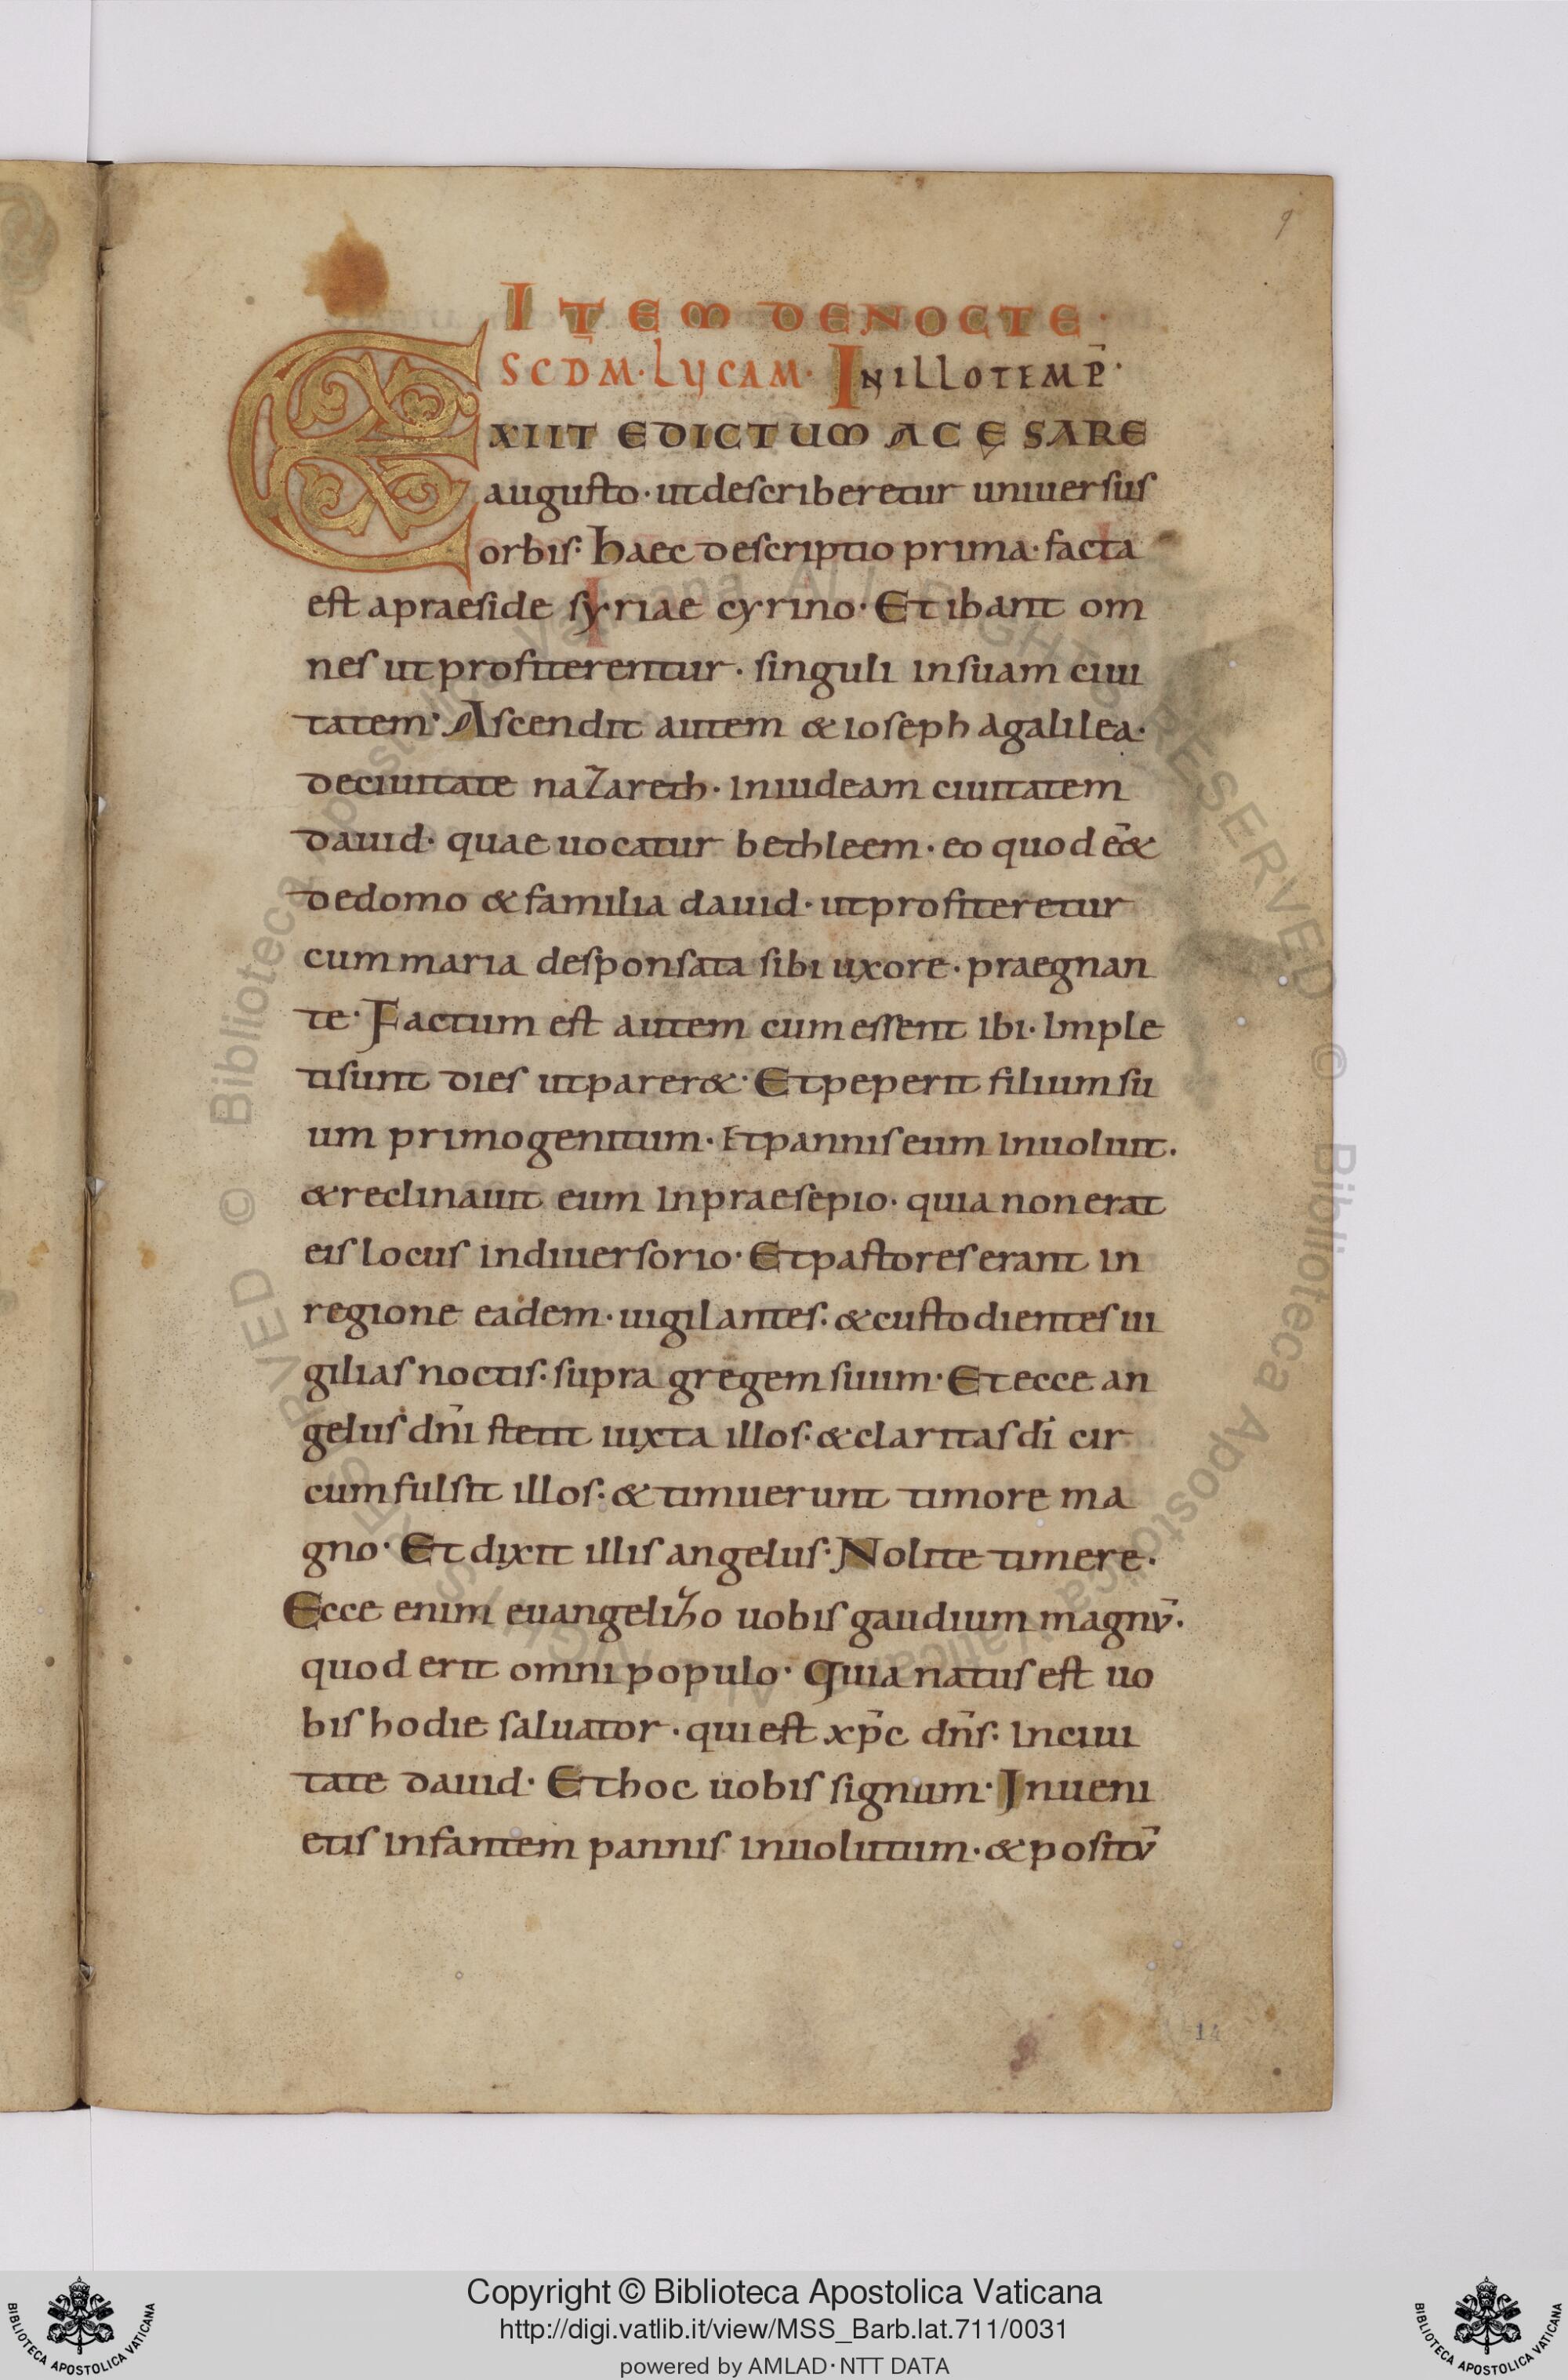 9
ITEM DE NOCTE·
SCDM̄· LUCAM· IN ILLO TEMP̄·
EXIIT EDICTUM A CĘSARE
augusto· ut describeretur uniuersus
orbis· haec descriptio prima· facta
est a praeside syriae cyrino· Et ibant om
nes ut profiterentur· singuli in suam ciui
tatem· Ascendit autem & ioseph a galilea·
de ciuitate nazareth· in iudeam ciuitatem
dauid· quae uocatur bethleem· eo quod eēt
de domo & familia dauid· ut profiteretur
cum maria desponsata sibi uxore· praegnan
te· Factum est autem cum essent ibi· imple
ti sunt dies ut parer&· Et peperit filium su
um primogenitum· Et pannis eum inuoluit·
& reclinauit eum in praesepio· quia non erat
eis locus in diuersorio· Et pastores erant in
regione eadem· uigilantes· & custodientes ui
gilias noctis· supra gregem suum· Et ecce an
gelus dn̄i stetit iuxta illos· & claritas dī cir
cumfulsit illos· & timuerunt timore ma
gno· Et dixit illis angelus· Nolite timere·
Ecce enim euangelizo uobis gaudium magnū·
quod erit omni populo· Quia natus est uo
bis hodie saluator· qui est xp̄c dn̄s· in ciui
tate dauid· Et hoc uobis signum· Inueni
etis infantem pannis inuolutum· & positū
14
© Biblioteca Apostolica Vaticana ALL RIGHTS RESERVED © Biblioteca Apostolica Vaticana ALL RIGHTS RESERVED
Copyright © Biblioteca Apostolica Vaticana
http://digi.vatlib.it/view/MSS_Barb.lat.711/0031
powered by AMLAD·NTT DATA
BIBLIOTECA APOSTOLICA VATICANA
BIBLIOTECA APOSTOLICA VATICANA